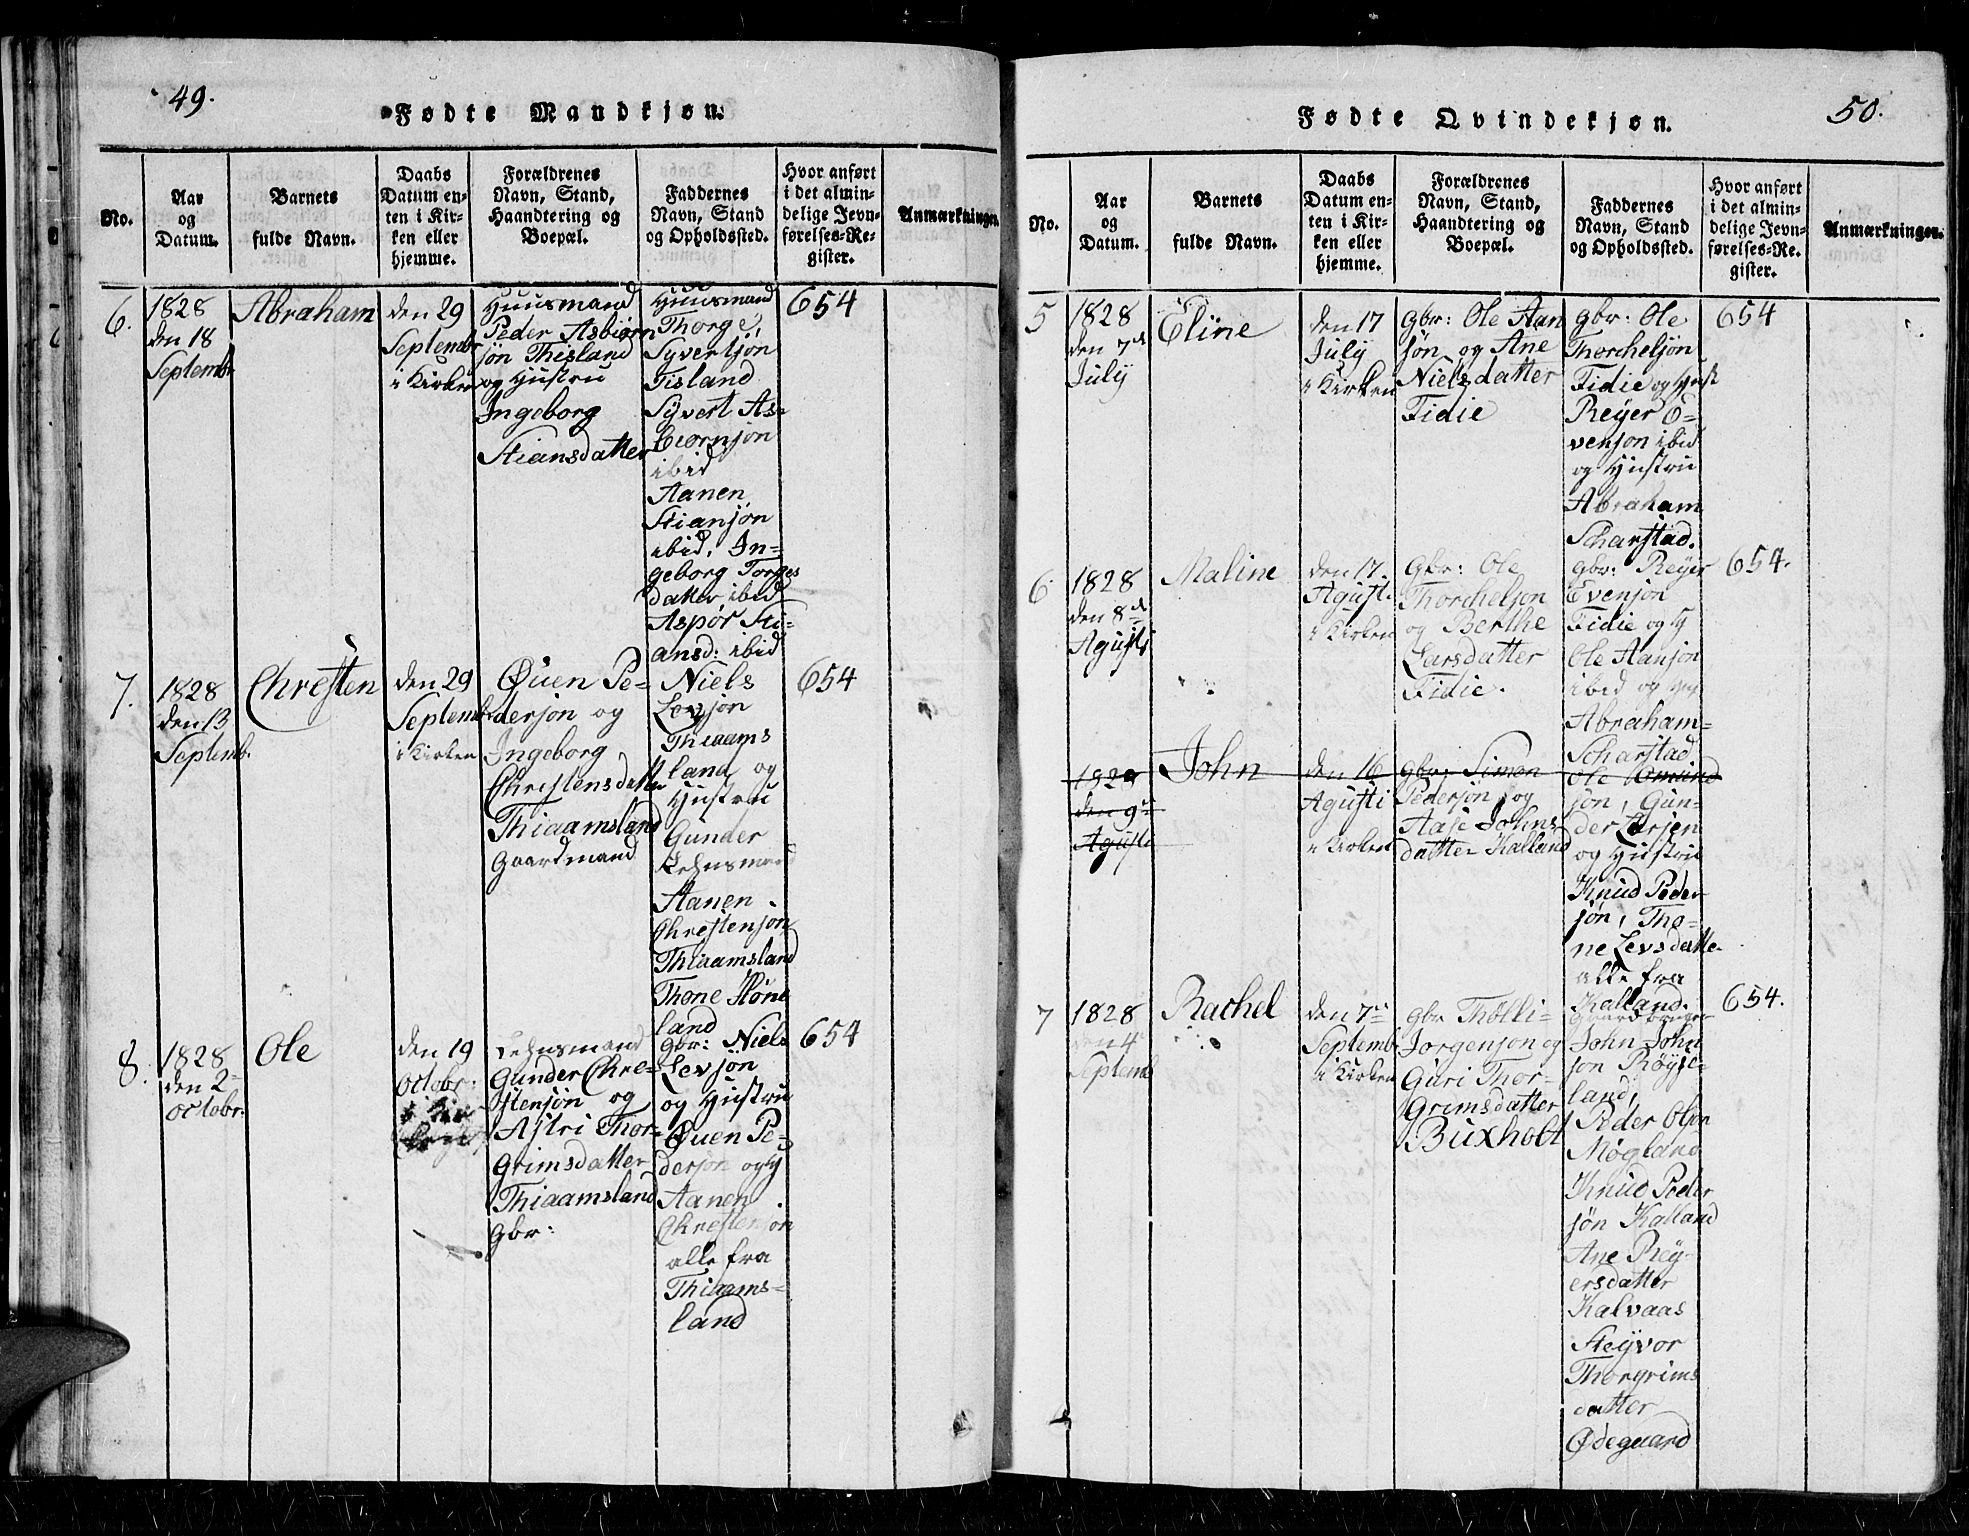 49.
Fødte Mandkjøn.
No.
Aar
og
Datum.
Barnets
fulde Navn.
Daabs
Datum en-
ten i Kir-
ken eller
hjemme.
Forældrenes
Navn, Stand,
Haandtering og
Boepæl.
Faddernes
Navn, Stand
og Opholdssted.
Hvor anført
i det almin-
delige Jevn-
førelses-Re-
gister.
Anmærkninger.
6.
1828
den 18
Septembr
Abraham
den 29
Septembr
i Kirken
Huusmand
Peder Asbiørn
søn Thisland
og Hustru
Ingeborg
Stiansdatter
Huusmand
Thorge
Syvertsøn
Tisland
Syvert As-
beornsøn
ibid
Aanen
Stiansøn
ibid, In-
geborg Torges
datter ibid
Aspør Sti-
ansd: ibid
654
7.
1828
den 13
Septemb.
Chresten
den 29
Septemb
i Kirken
Øuen Pe-
dersøn og
Ingeborg
Chrestensdatter
Thiaamsland
Gaardmand
Niels
Levsøn
Thiaams
land og
Hustru
Gunder
Lehnsmand
Aanen
Chrestensøn
Thiaamsland
Thone Høne
land
654
8.
1828
den 2-
Octobr.
Ole
den 19
Octobr:
i Kir
Lehnsmand
Gunder Chre-
stensøn og
Astri Thor-
Grimsdatter
Thiaamsland
Gbr:
Gbr: Niels
Levsøn
og Hustru
Øuen Pe-
dersøn og
Aanen
Chrestensøn
alle fra
Thiaams-
land
654
50.
Fødte Qvindekjøn.
No.
Aar
og
Datum.
Barnets
fulde Navn.
Daabs
Datum en-
ten i Kir-
ken eller
hjemme.
Forældrenes
Navn, Stand,
Haandtering og
Boepæl.
Faddernes
Navn, Stand
og Opholdssted.
Hvor anført
i det almin-
delige Jevn-
førelses-Re-
gister.
Anmærkninger.
5
1828
den 7de
July
Eline
den 17
July
i Kirken
Gbr: Ole Aan
søn og Ane
Nielsdatter
Fidie
Gbr: Ole
Thorchelsøn
Fidie og Hust
Reyer E-
vensøn ibid
og Hustru
Abraham
Scharstad.
654
6
1828
den 8de
Agusti
Maline
den 17.
Agusti
i Kirken
Gbr: Ole
Thorchelsøn
og Berthe
Larsdatter
Fidie.
Gbr: Reyer
Evensøn
Fidie og
Ole Aansøn
ibid og
Abraham-
Scharstad
654.
1828
den 9de
Agusti
John
den 16
Agusti
i Kirken
Gbr: Simon
Pedersøn og
Aase Johns
datter Kalland
Ole Omund
søn, Gun-
der Larsen
og Hustru
Knud Peder
søn, Tho-
ne Levsdatte.
alle fra
Kalland.
7
1828
den 4
Septemb
Rachel
den 7de
Septembr
i Kirken
Gbr Thølli-
Jorgensøn og
Guri Thor-
Grimsdatter
Buxholt
Gaardbruger
John John
søn Røyse-
land,
Peder Olson
Møgland
Knud Peder
søn Kalland
Ane Rey-
ersdatter
Kalvaas
Steyvor
Thorgrims
datter
Ødegaard
654.